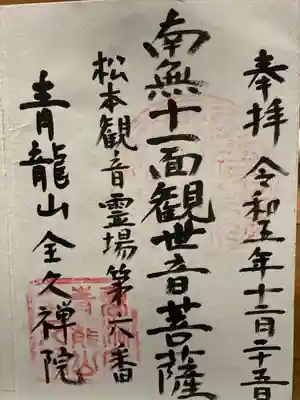 奉拝 令和五年十二月二十五日
南無十一面観世音菩薩
松本観音霊場第六番
青龍山 全久禅院